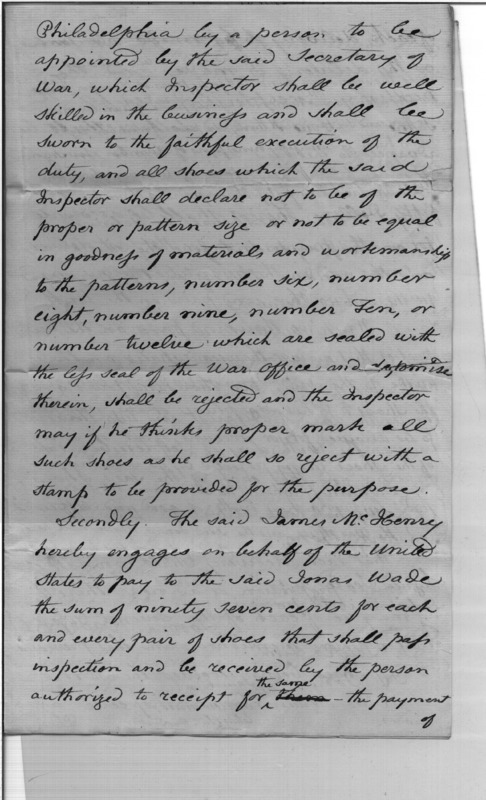 Philadelphia by a person to be
appointed by the said Secretary of
War, which Inspector shall be well
skilled in the business and shall be
sworn to the faithful execution of the
duty, and all shoes which the said
Inspector shall declare not to be of the
proper or pattern size or not to be equal
in goodness of materials and workmanship
to the patterns, number six, number
eight, number nine, number Ten, or
number twelve which are sealed with
the less seal of the War Office and
therein, shall be rejected and the Inspector
may if he thinks proper mark all
such shoes as he shall so reject with a
stamp to be provided for the purpose.
Secondly. The said James McHenry
hereby engages on behalf of the United
States to pay to the said Jonas Wade
the sum of ninety seven cents for each
and every pair of shoes that shall pass
inspection and be received by the person
authorized to receipt for the same them – the payment
of